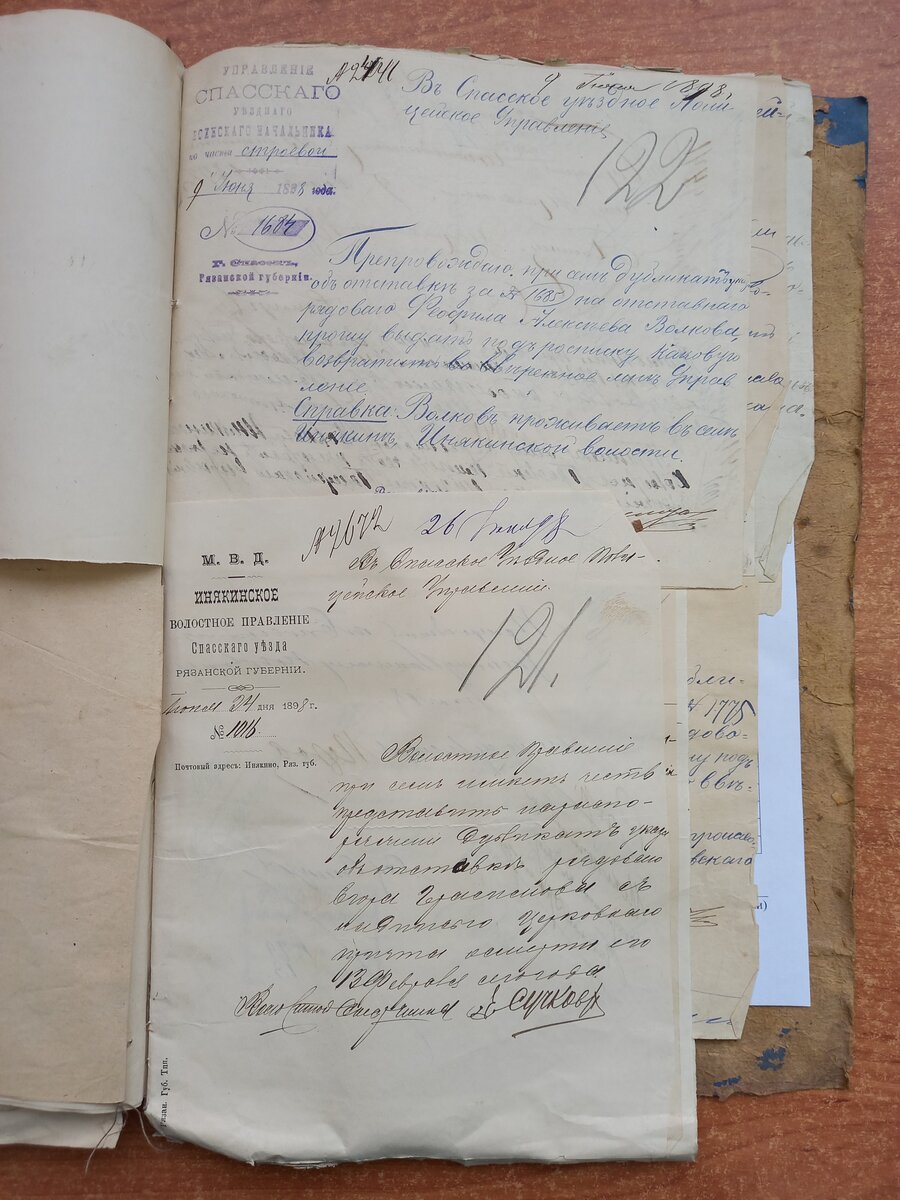 УПРАВЛЕНІЕ
СПАССКАГО
УѢЗДНАГО
ВОИНСКАГО НАЧАЛЬНИКА
по части строевой
9 Іюня 1898 года.
№ 1684
Г. Спасскъ,
Рязанской губерніи.
9 Іюня 1898 г.
Въ Спасское уѣздное Поли-
цейское Управленіе
122
Препровождаю при семъ дубликатъ указа
объ отставкѣ за № 1685 на отставнаго
рядоваго Феофила Алексѣева Волкова,
прошу выдать подъ росписку, каковую
возвратить во ввѣренное мнѣ Управ
леніе.
Справка: Волковъ проживаетъ въ селѣ
Инякинѣ, Инякинской волости.
№ 1775
М. В. Д.
ИНЯКИНСКОЕ
ВОЛОСТНОЕ ПРАВЛЕНІЕ
Спасскаго уѣзда
РЯЗАНСКОЙ ГУБЕРНІИ.
Іюня 24 дня 1898 г.
№ 1016
Почтовый адресъ: Инякино, Ряз. губ.
№ 7672
26
Въ Спасское Уѣздное Поли-
цейское Управленіе
121.
Волостное Правленіе
при семъ имѣетъ честь
представить
дубликатъ указа
объ отставкѣ рядоваго
Герасимова съ
надписью Церковнаго
причта о смерти его
13 Февраля сего года
Волостной Старшина Сучковъ
Рязан. Губ. Тип.